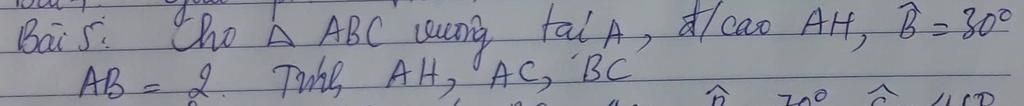 Bài 5: Cho Δ ABC vuông tại A, đ/cao AH, B̂ = 30°
AB = 2. Tính AH, AC, BC